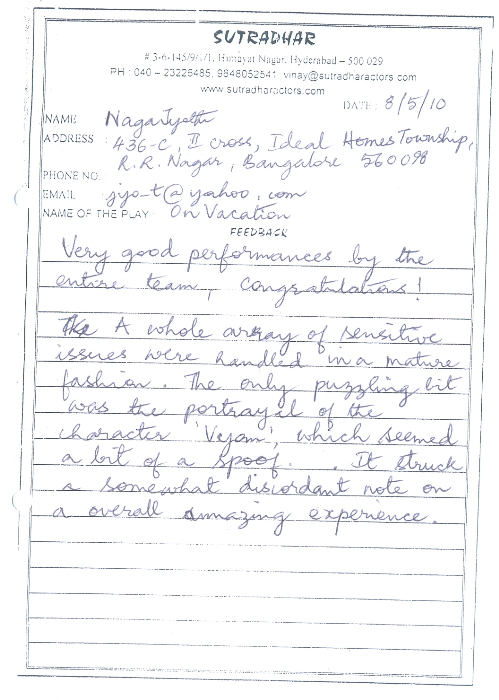 SUTRADHAR
# 3-6-145/9/1/1, Himayat Nagar, Hyderabad – 500 029
PH : 040 – 23225485, 9848052541 vinay@sutradharactors.com
www.sutradharactors.com
DATE : 8/5/10
NAME Naga Jyothi
ADDRESS : 436-C, II cross, Ideal Homes Township,
R.R. Nagar, Bangalore 560098
PHONE NO.
EMAIL : jyo_t@yahoo.com
NAME OF THE PLAY : On Vacation
FEEDBACK
Very good performances by the
entire team, congratulations!
The A whole array of sensitive
issues were handled in a mature
fashion. The only puzzling bit
was the portrayal of the
character 'Vejom', which seemed
a bit of a spoof. . It struck
a somewhat discordant note on
a overall amazing experience.